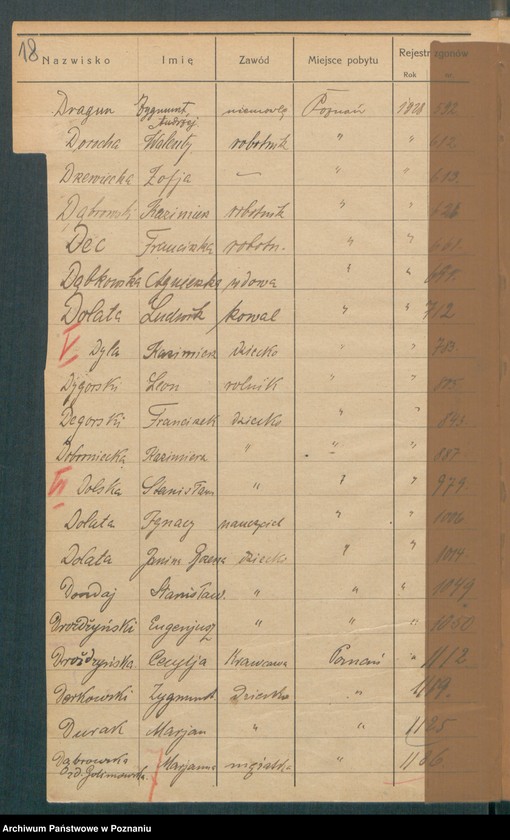 18
Nazwisko Imię Zawód Miejsce pobytu Rejestr zgonów
Rok nr.
Dragun Zygmunt, Andrzej niemowlę Poznań 1928 592
Dorocha Walenty robotnik " " 612.
Drzewiecka Zofja — " " 613.
Dąbrowski Kazimierz robotnik " " 626
Dec Franciszka robotn. " "
Dąbkowska Agnieszka wdowa " "
Dolata Ludwik kowal " " 712
V Dyla Kazimiera dziecko " " 703.
Dygorski Leon rolnik " " 805
Degorski Franciszek dziecko " " 843.
Dobroniecka Kazimiera " " " 887
VI Dolska Stanisława " " " 979.
Dolata Ignacy nauczyciel " " 1006
Dolata Janina dziecko " " 1014
Stanisław. " " " 1049
Drożdżyński Eugenjusz " " " 1050
Drożdżyńska Cecylja Krawcowa Poznań " 1112
Derkowski Zygmunt dziecko " 1119.
Durak Marjan " " 1125
Dąbrowska Marjanna mężatka " 1136
Archiwum Państwowe w Poznaniu